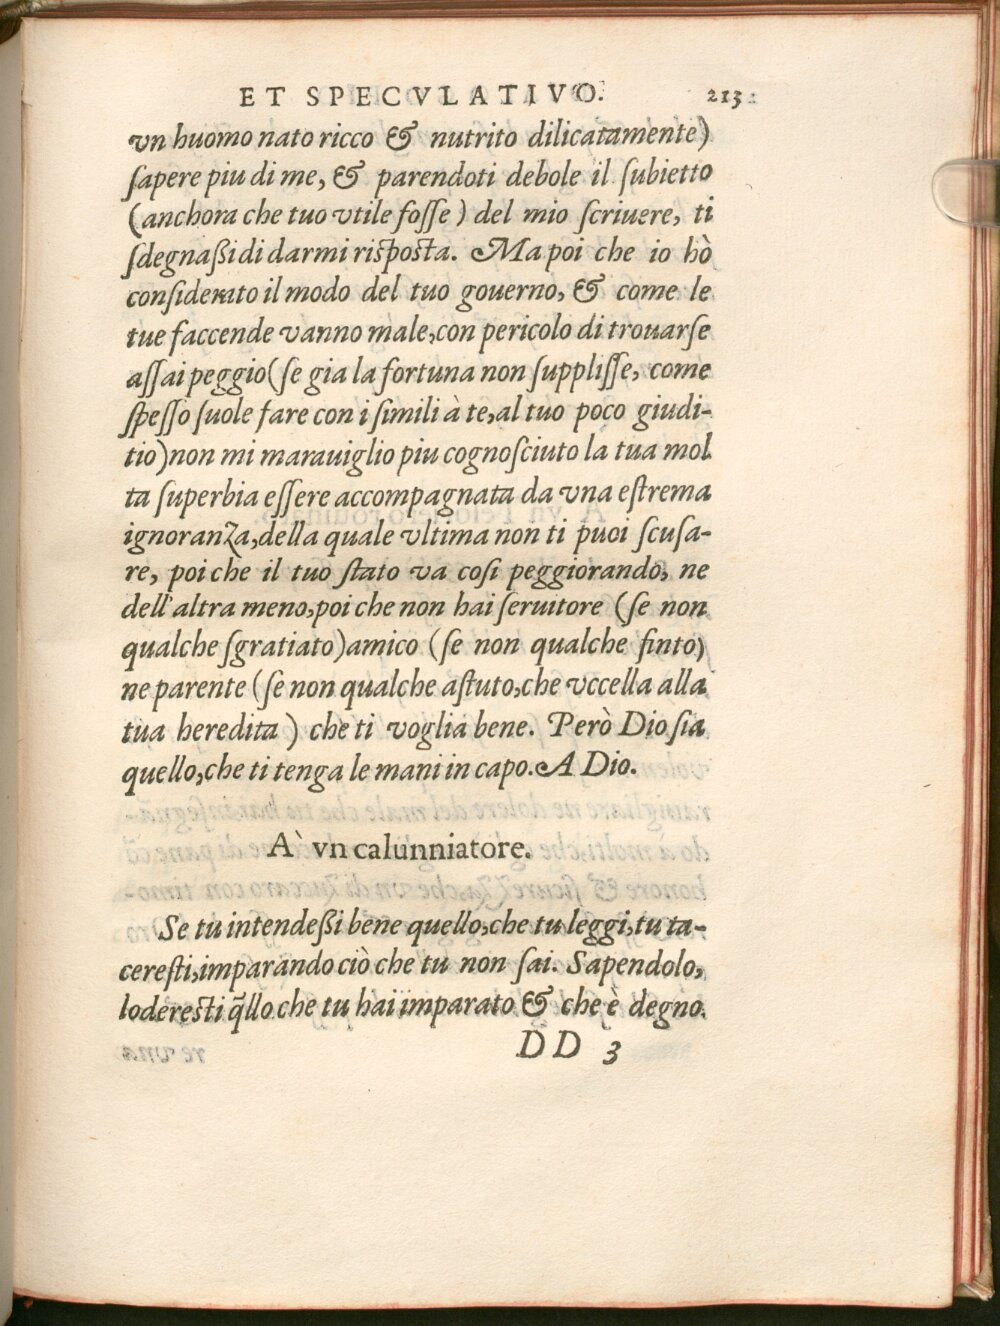 ET SPECVLATIVO. 213
vn huomo nato ricco & nutrito dilicatamente)
ſapere piu di me, & parendoti debole il ſubietto
(anchora che tuo vtile foſſe) del mio ſcriuere, ti
ſdegnaßi di darmi riſpoſta. Ma poi che io hò
conſiderato il modo del tuo gouerno, & come le
tue faccende vanno male, con pericolo di trouarſe
aſſai peggio (ſe gia la fortuna non ſuppliſſe, come
ſpeſſo ſuole fare con i ſimili à te, al tuo poco giudi-
tio) non mi marauiglio piu cognoſciuto la tua mol
ta ſuperbia eſſere accompagnata da vna eſtrema
ignoranza, della quale vltima non ti puoi ſcuſa-
re, poi che il tuo ſtato va coſi peggiorando, ne
dell'altra meno, poi che non hai ſeruitore (ſe non
qualche ſgratiato) amico (ſe non qualche finto)
ne parente (ſe non qualche aſtuto, che vccella alla
tua heredita) che ti voglia bene. Però Dio ſia
quello, che ti tenga le mani in capo. A Dio.
A` vn calunniatore.
Se tu intendeßi bene quello, che tu leggi, tu ta-
cereſti, imparando ciò che tu non ſai. Sapendolo,
lodereſti q̃llo che tu hai imparato & che è degno.
DD 3